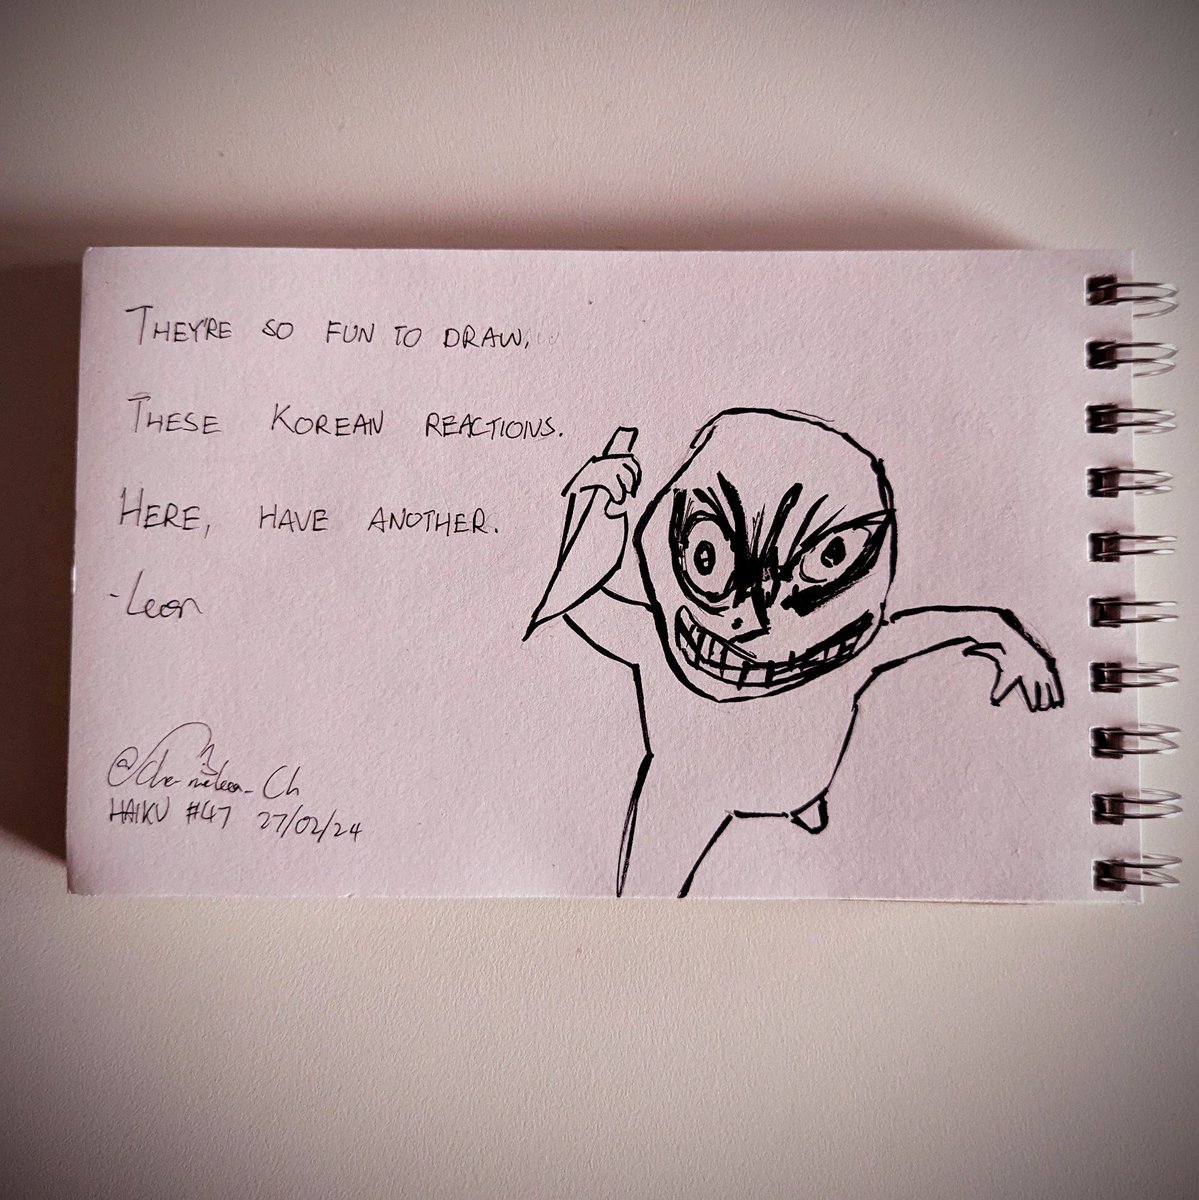 THEY'RE SO FUN TO DRAW,
THESE KOREAN REACTIONS.
HERE, HAVE ANOTHER.
-Leon
HAIKU #47 27/02/24